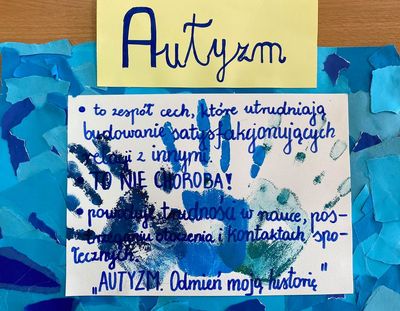 Autyzm
• to zespół cech, które utrudniają
budowanie satysfakcjonujących
relacji z innymi.
• TO NIE CHOROBA!
• powoduje trudności w nauce, pos-
trzeganiu otoczenia i kontaktach spo-
łecznych.
„AUTYZM. Odmień moją historię"